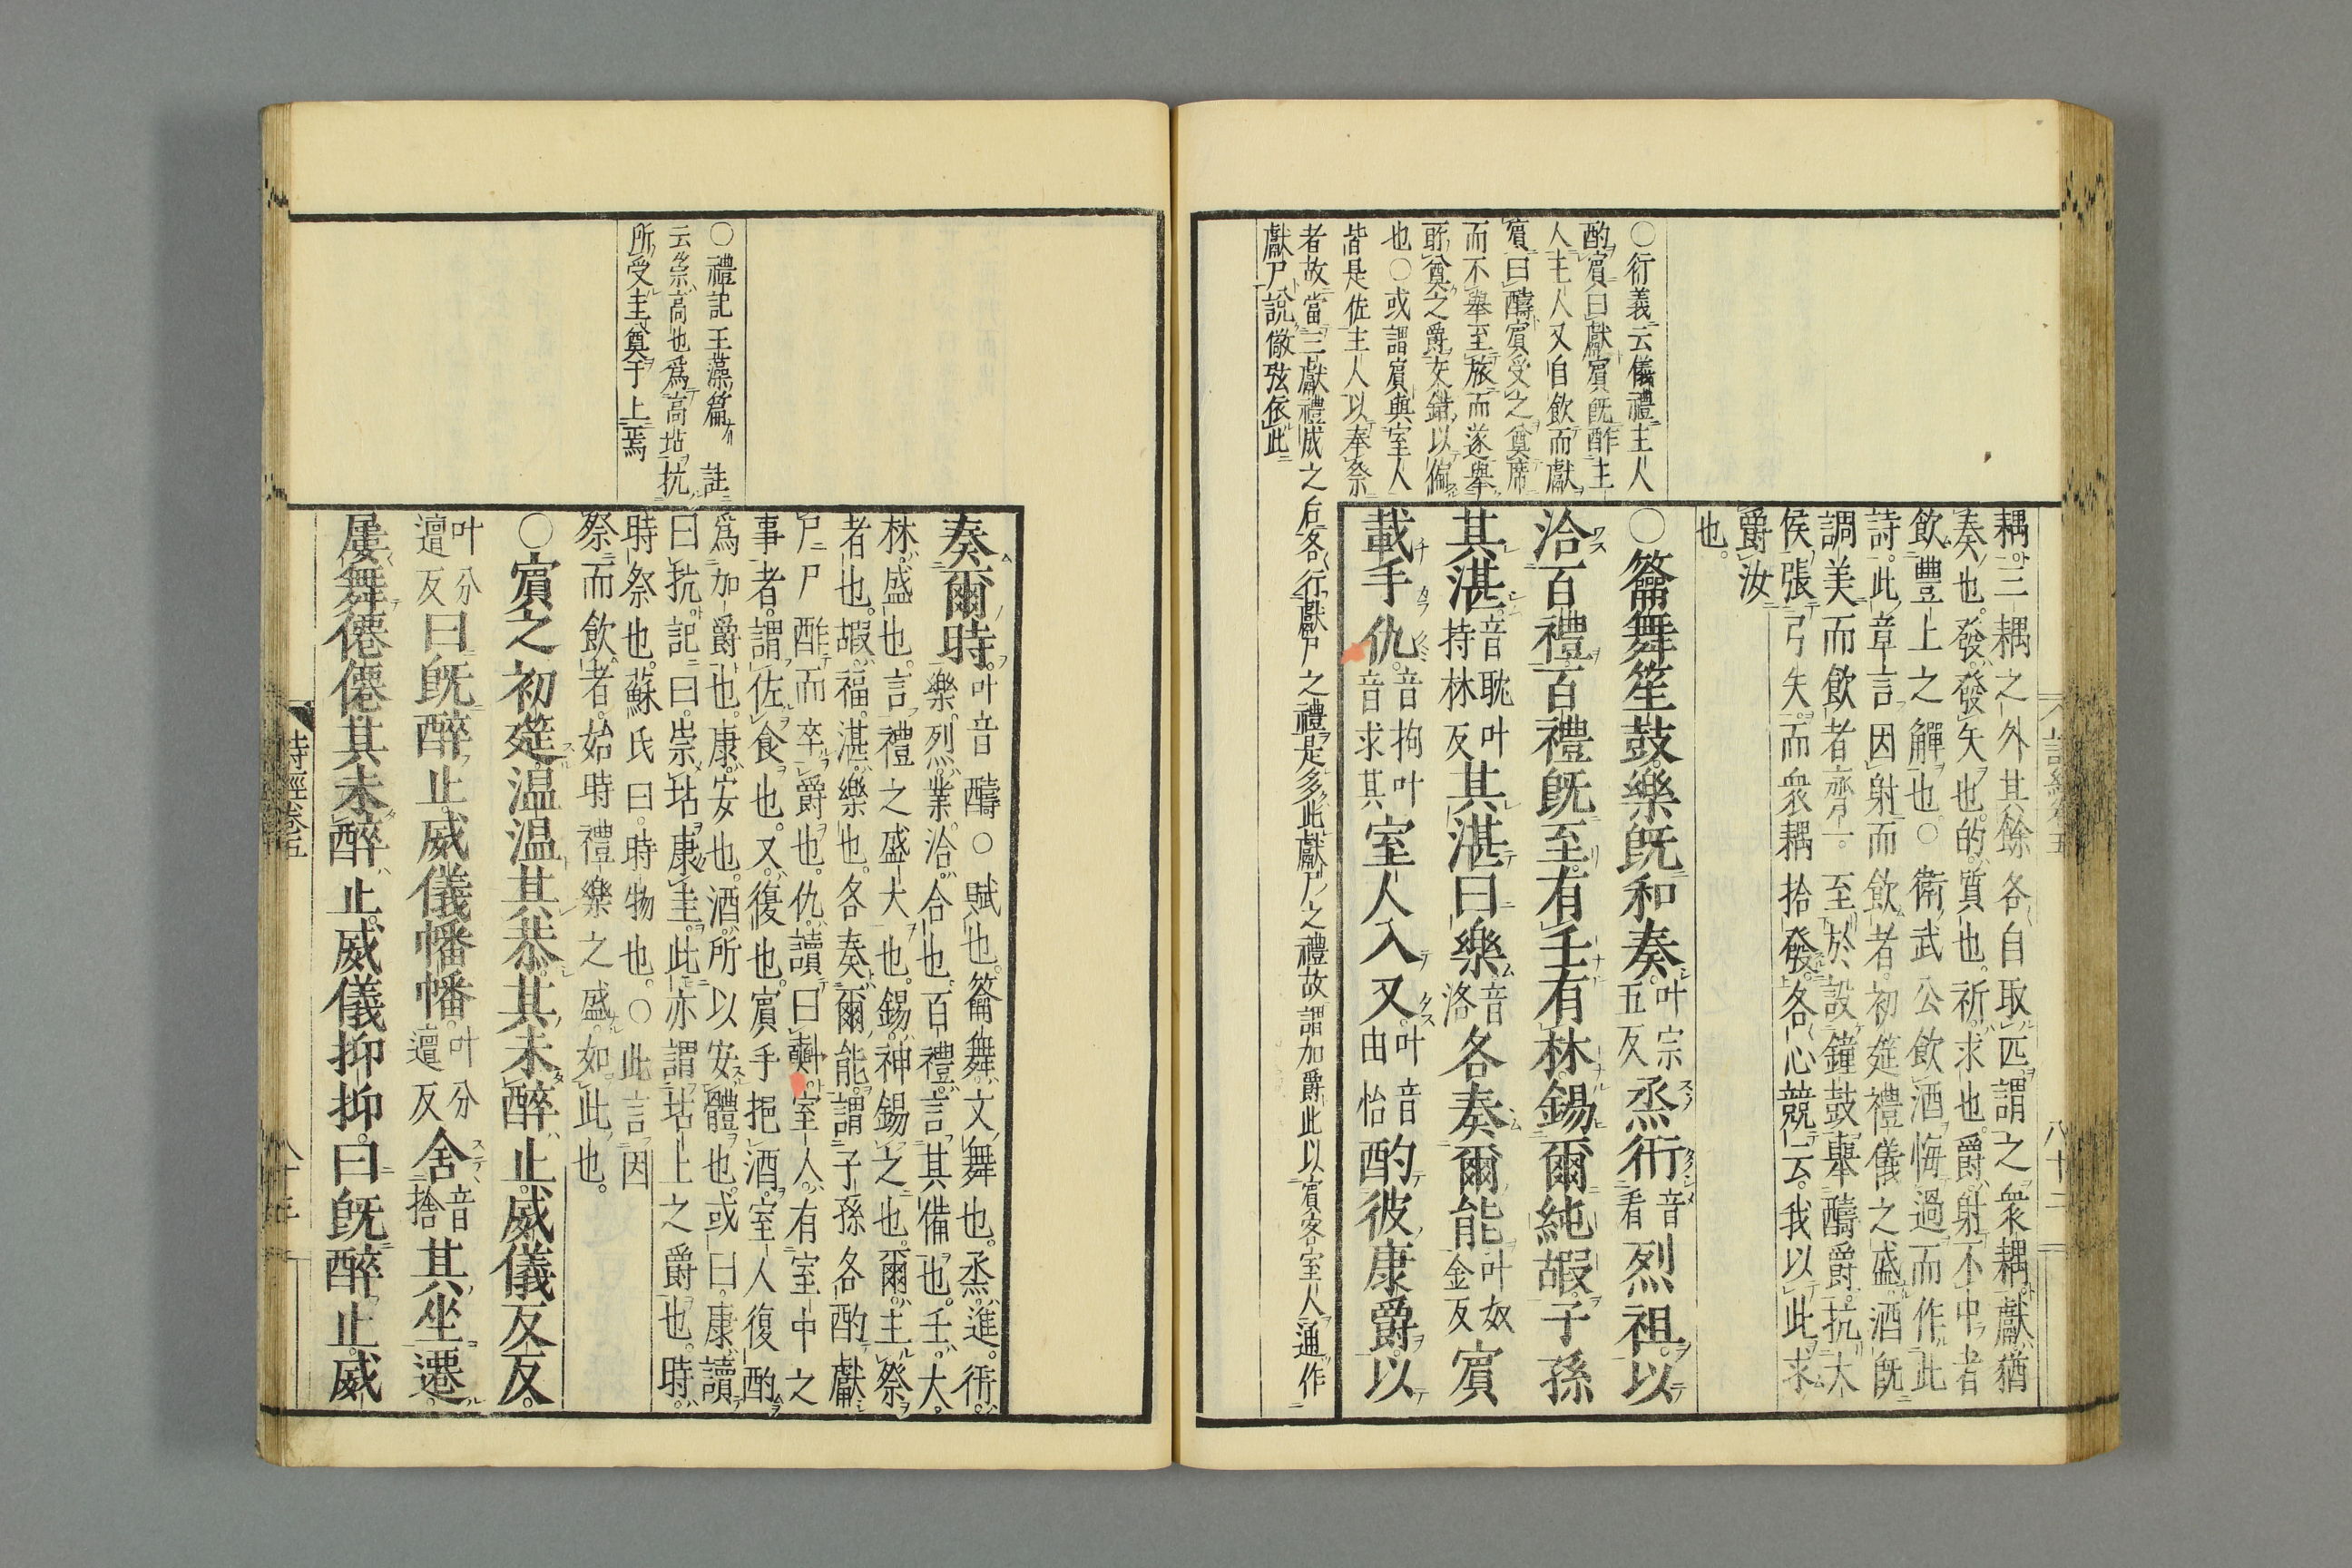 ○衍義云儀禮主人
酌賓曰獻賓既酢主
人主人又自飲而獻
賓曰醻賓受之奠席
而不舉至旅而遂舉
所奠之爵交錯以徧
也○或謂賓與室人
皆是佐主人以奉祭
者故當三獻禮成之后各行獻尸之禮是多此獻尸之禮故謂加爵此以賓客室人通作
獻尸說儆弦依此
耦。三耦之外其餘各自取匹。謂之衆耦。獻猶
奏也。發。發矢也。的。質也。祈。求也。爵。射不中者
飲豐上之觶也。○衛武公飲酒悔過而作此
詩。此章言因射而飲者。初筵禮儀之盛。酒既
調美而飲者齊一。至於設鐘鼓舉醻爵。抗大
侯張弓矢。而衆耦拾發。各心競云。我以此求
爵汝
也。
○籥舞笙鼓。樂既和奏。叶宗五反烝衎音看烈祖。以
洽百禮。百禮既至。有壬有林。錫爾純嘏。子孫
其湛。音耽叶持林反其湛曰樂音洛各奏爾能叶奴金反賓
載手仇。音拘叶音求其室人入又。叶音由怡酌彼康爵。以
詩經卷五
八十二
○禮記玉藻篇有註
云崇高也爲高坫抗
所受圭奠于上焉
奏爾時。叶音醻○賦也。籥舞。文舞也。烝。進。衎。
樂。烈。業。洽。合也。百禮。言其備也。壬。大。
林。盛也。言禮之盛大也。錫。神錫之也。爾。主祭
者也。嘏。福。湛。樂也。各奏爾能。謂子孫各酌獻
尸尸酢而卒爵也。仇。讀曰𣂏。室人。有室中之
事者。謂佐食也。又。復也。賓手挹酒。室人復酌
爲加爵也。康。安也。酒。所以安體也。或曰。康。讀
曰抗。記曰。崇坫康圭。此亦謂坫上之爵也。時。
時祭也。蘇氏曰。時物也。○此言因
祭而飲者。始時禮樂之盛。如此也。
○賓之初筵。温温其恭。其未醉止。威儀反反。
叶分邅反曰既醉止。威儀幡幡。叶分邅反舍音捨其坐遷。
屢舞僊僊。其未醉止。威儀抑抑。曰既醉止。威
詩經卷五